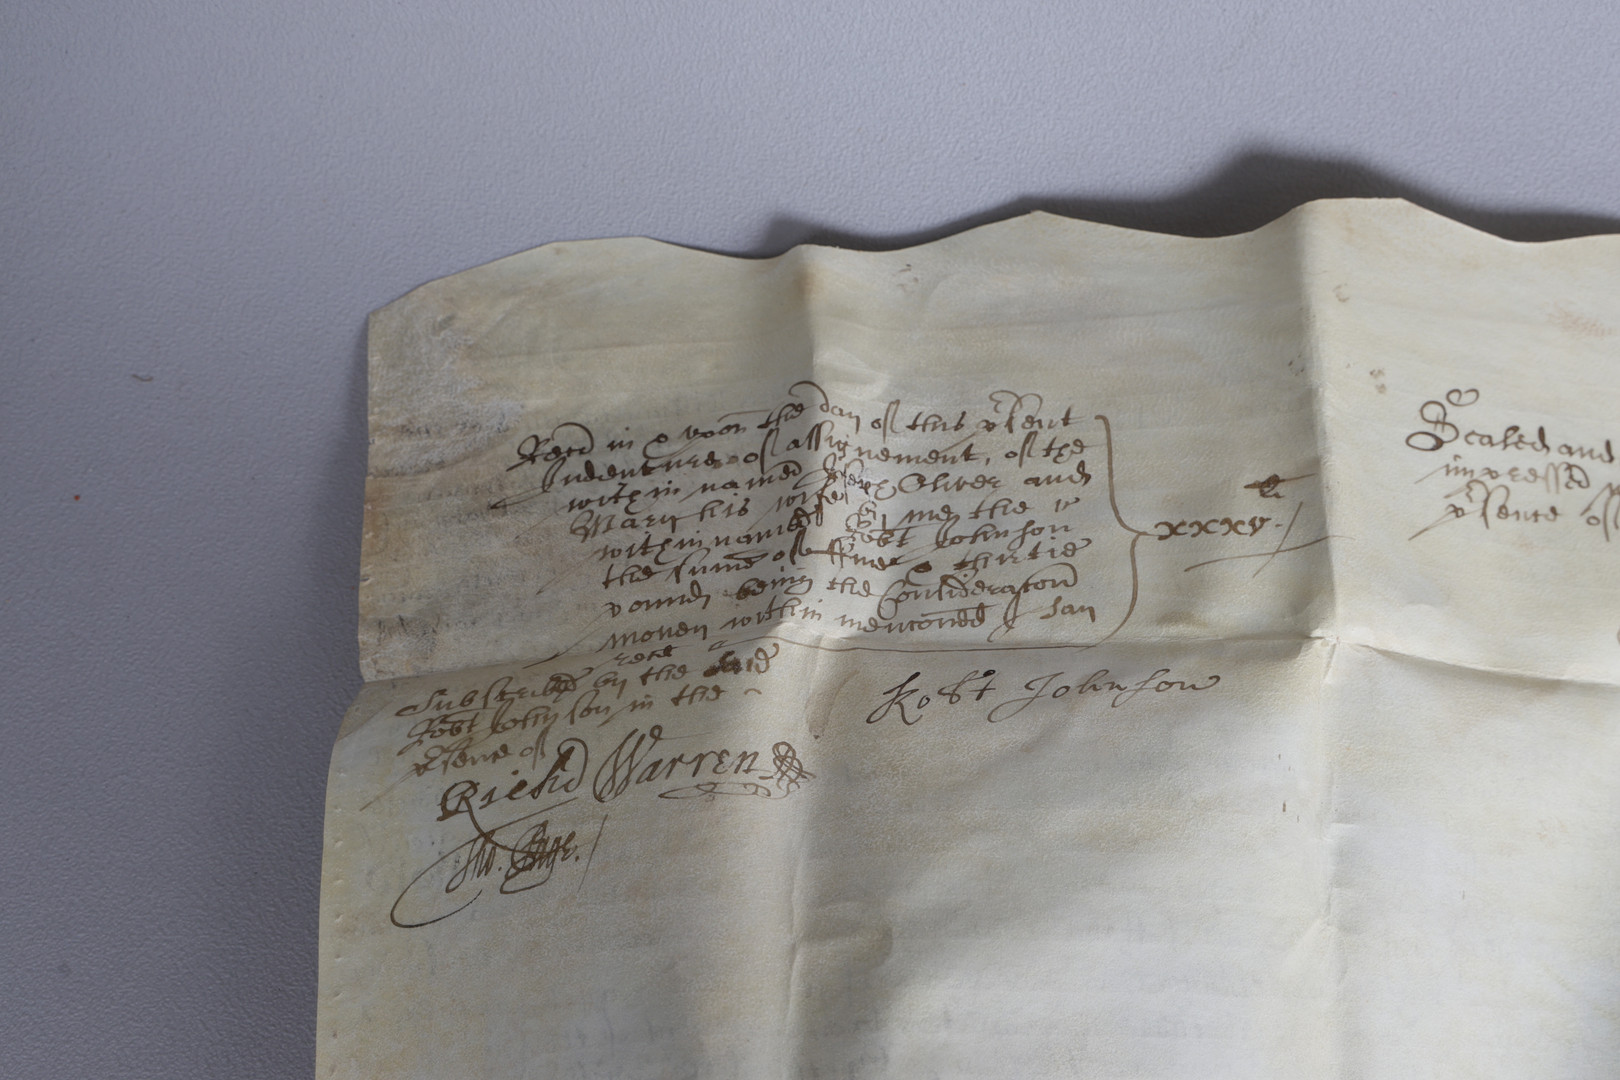 Recd in & upon the day of this psent
Indenture of assignement, of the
within named Joseph Oliver and
Mary his wife By me the
within named Robt Johnson
the sume of ffive & thirtie
pounds being the Consideracon
money within menconed I say
recd
xxxv li
Subscribed by the said
Robt Johnson in the
psence of
Robt Johnson
Richd Warren
Tho. Page.
Sealed and
impressed
psence of